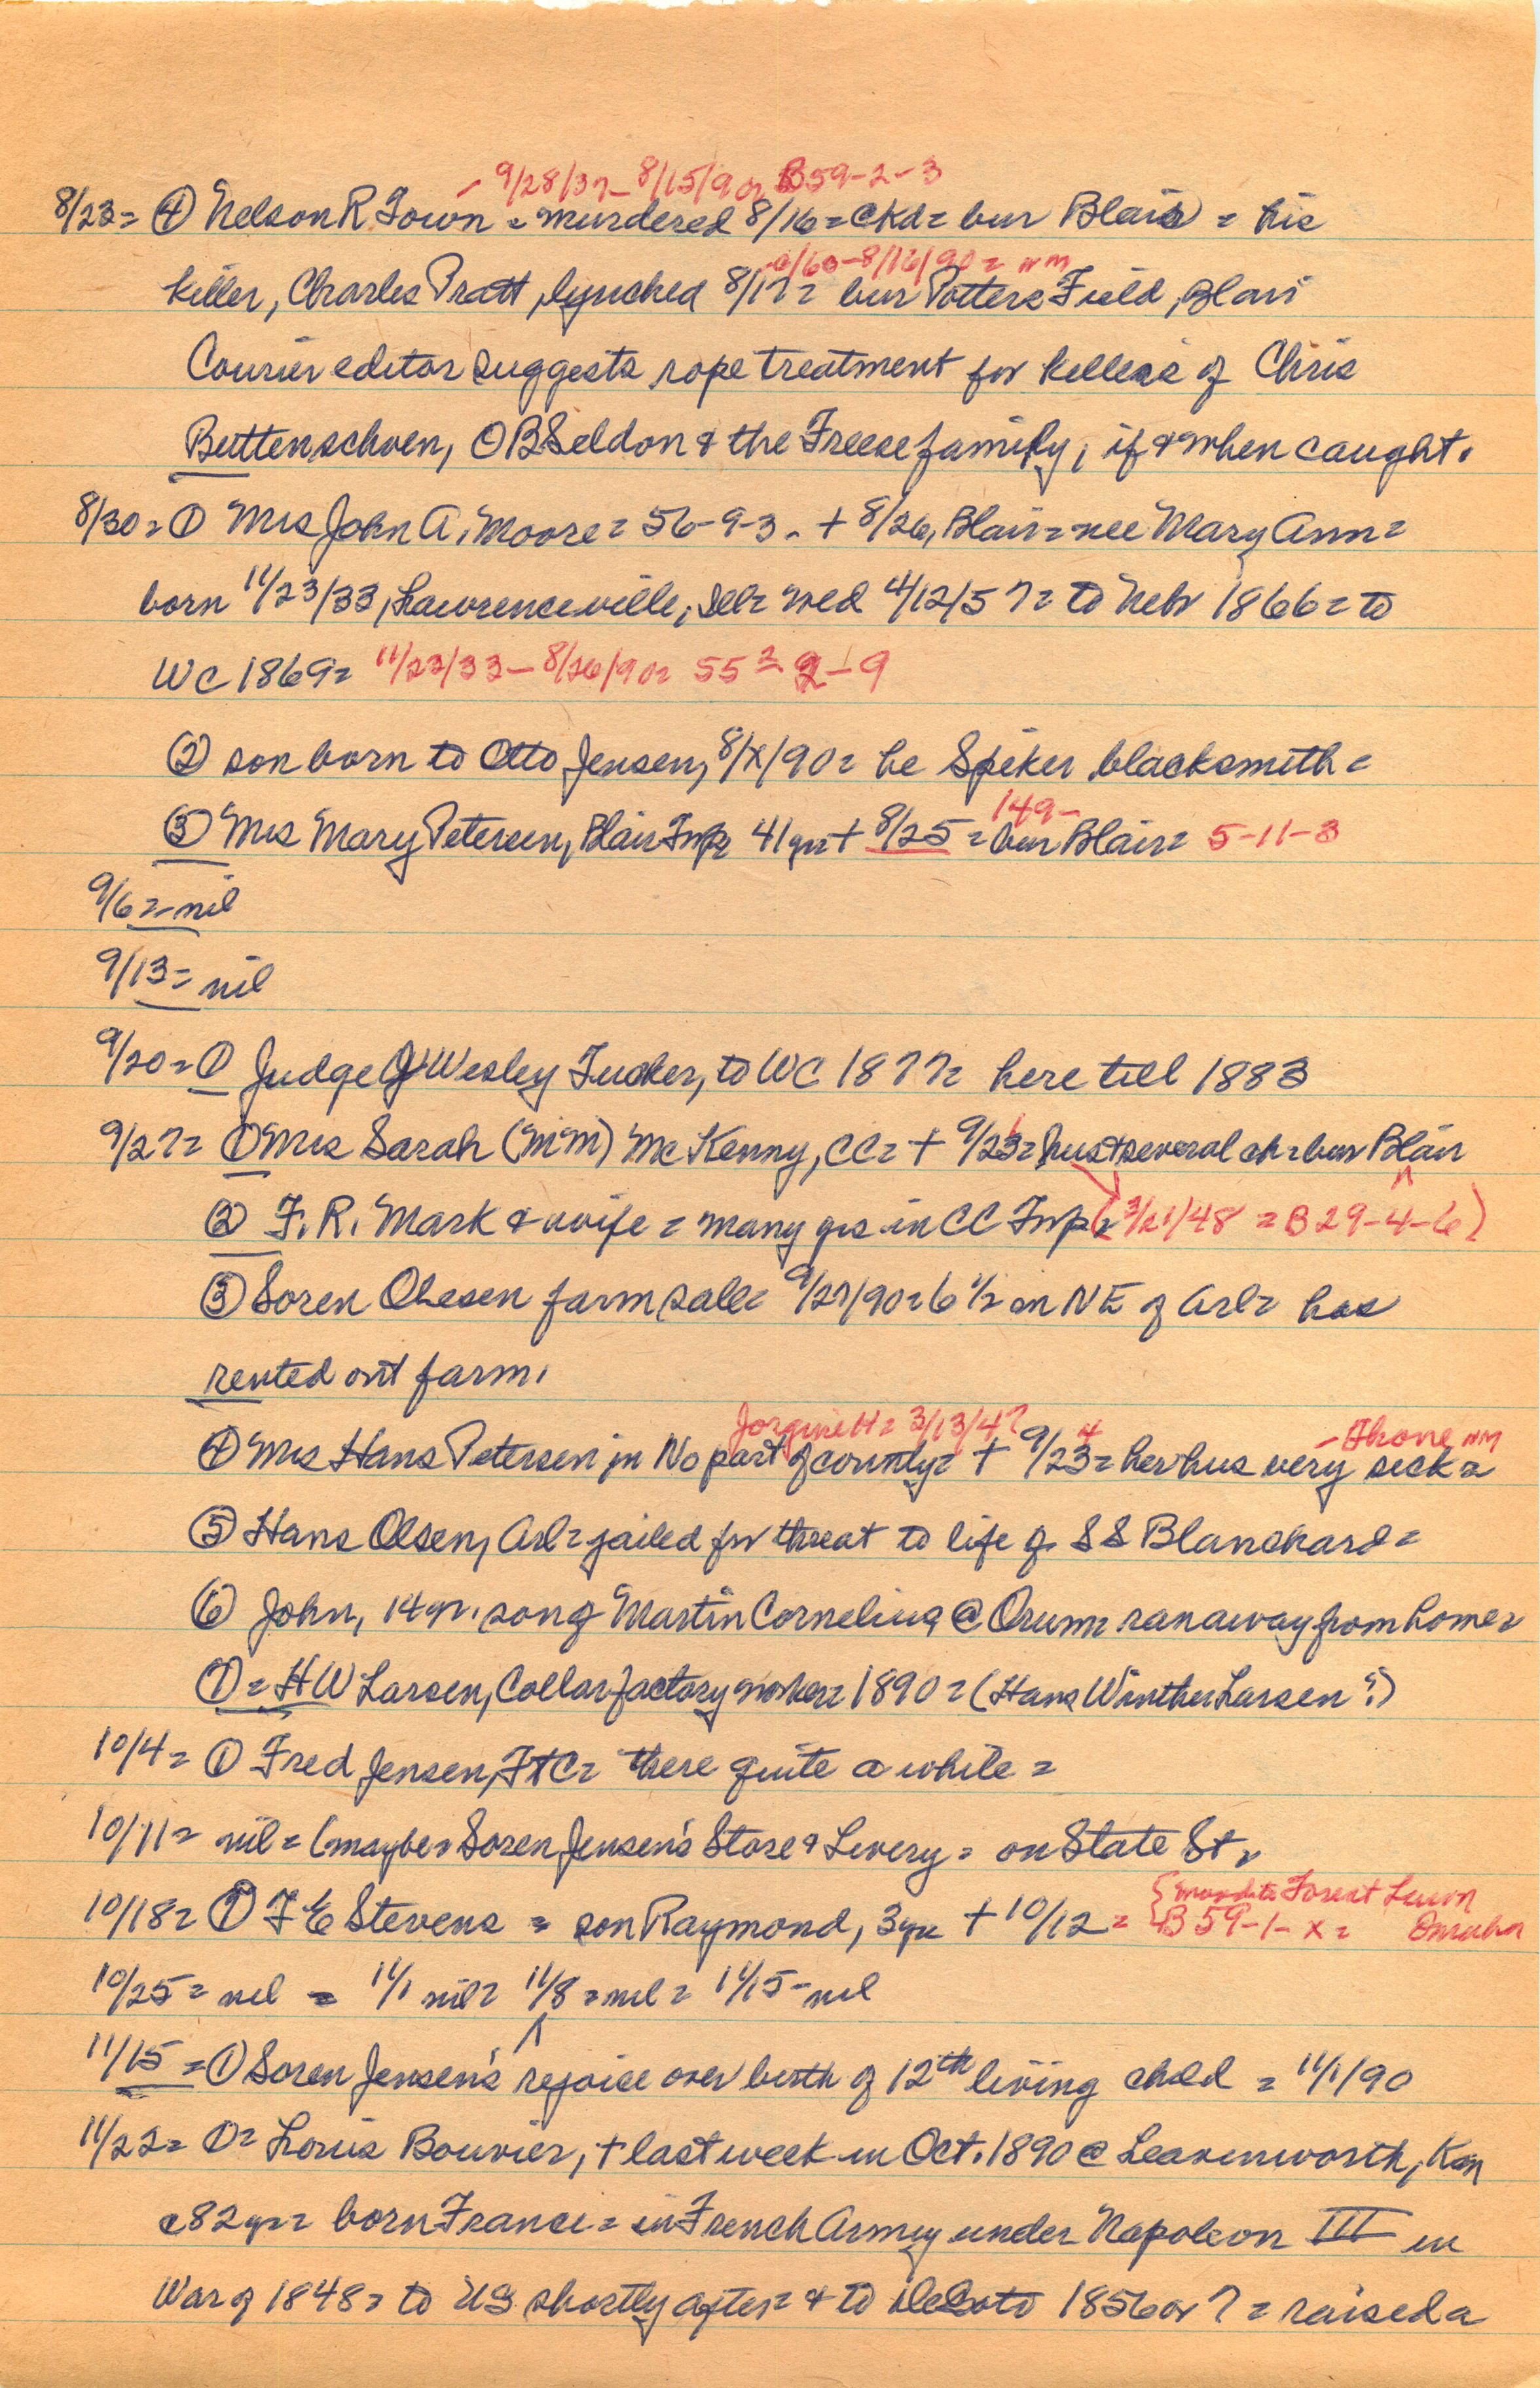 - 9/28/37 - 8/15/90= B59-2-3
8/23= ④ Nelson R Town = murdered 8/16 = ckd = bur Blair = his
c/60 - 8/16/90 = nm
killer, Charles Pratt, lynched 8/17 = bur Potters Field, Blair
Courier editor suggests rope treatment for killers of Chris
Buttenschoen, O B Seldon & the Freese family, if & when caught.
8/30= ① Mrs John A. Moore = 56-9-3. + 8/26, Blair = nee Mary Ann =
born 11/23/33, Lawrenceville, Ill= wed 4/12/57= to Nebr 1866= to
WC 1869= 11/23/33 - 8/26/90= 55 - 9
② son born to Otto Jensen, 8/x/90= he Spiker blacksmith =
149-
③ Mrs Mary Petersen, Blair Twp= 41 yrs + 8/25 = bur Blair= 5-11-3
9/6 = nil
9/13 = nil
9/20= ① Judge J Wesley Tucker, to WC 1877= here till 1883
9/27= ① Mrs Sarah (M M) McKenny, CC= + 9/23= hus + several ch = bur Blair
② F. R. Mark & wife = many yrs in CC Twp= (3/21/48 = B 29-4-6)
③ Soren Olesen farm sale= 9/27/90= 6 1/2 m NE of Arl= has
rented out farm.
Jorgine H = 3/13/47 4 - Thone nm
④ Mrs Hans Petersen in No part of county= + 9/23= her hus very sick=
⑤ Hans Olsen, Arl= jailed for threat to life of S S Blanchard=
⑥ John, 14 yr. son of Martin Cornelius @ Orum= ran away from home=
⑦ = H W Larsen, Collar factory worker= 1890= (Hans Winther Larsen?)
10/4= ① Fred Jensen, FtC= there quite a while =
10/11= nil = (maybe= Soren Jensen's Store & Livery = on State St=
{ Forest Lawn
10/18= ① F E Stevens = son Raymond, 3 yrs + 10/12 = B 59-1-x= Omaha
10/25= nil = 11/1 nil= 11/8 = nil = 11/15 - nil
11/15 = ① Soren Jensen's ^ rejoice over birth of 12th living child = 11/1/90
11/22= ①= Louis Bouvier, + last week in Oct. 1890 @ Leavenworth, Kan
c82 yrs= born France = in French Army under Napoleon III in
War of 1848= to US shortly after= & to DeSoto 1856 or 7= raised a